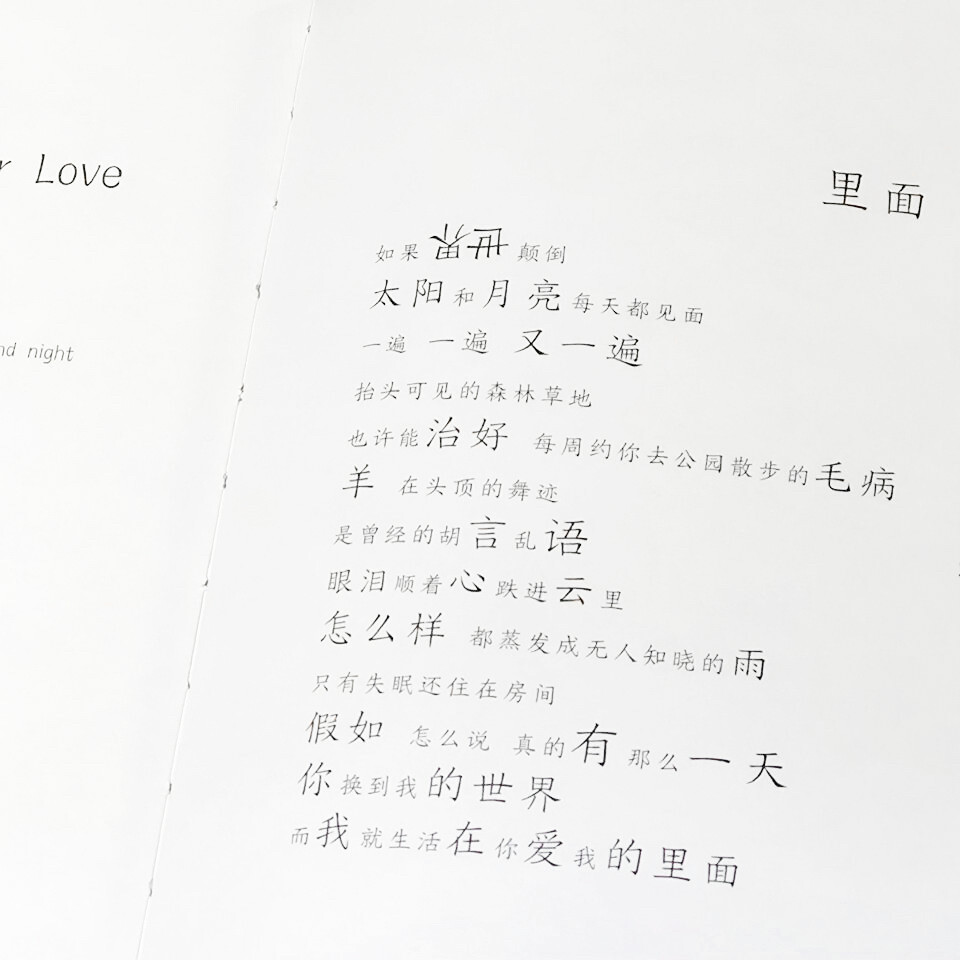 Love
night
里面
如果世界颠倒
太阳和月亮每天都见面
一遍 一遍 又一遍
抬头可见的森林草地
也许能治好 每周约你去公园散步的毛病
羊 在头顶的舞迹
是曾经的胡言乱语
眼泪顺着心跌进云里
怎么样 都蒸发成无人知晓的雨
只有失眠还住在房间
假如 怎么说 真的有那么一天
你换到我的世界
而我就生活在你爱我的里面